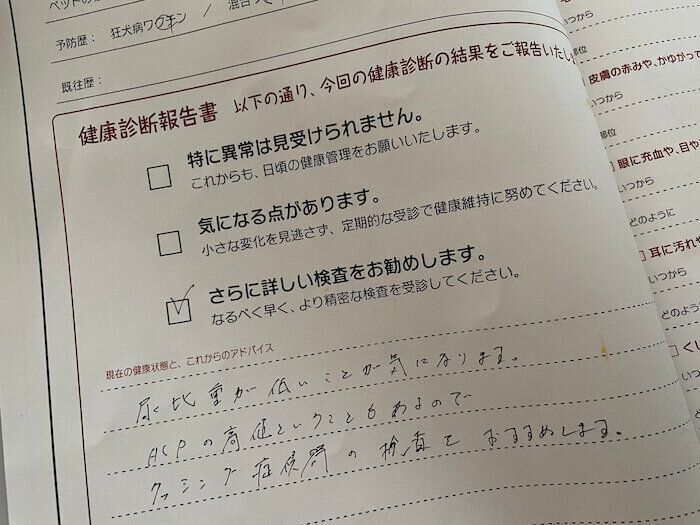 ペットの
予防歴： 狂犬病ワクチン / 混合
既往歴：
健康診断報告書 以下の通り、今回の健康診断の結果をご報告いたし
特に異常は見受けられません。
これからも、日頃の健康管理をお願いいたします。
気になる点があります。
小さな変化を見逃さず、定期的な受診で健康維持に努めてください。
さらに詳しい検査をお勧めします。
なるべく早く、より精密な検査を受診してください。
現在の健康状態と、これからのアドバイス
尿比重が低いことが気になります。
ALPの高値ということもあるので
クッシング症候群の検査をおすすめします。
いつから
部位
皮膚の赤みや、かゆがっ
いつから
部位
眼に充血や、目や
いつから
どのように
耳に汚れや
いつから
どのよう
くし
いつ